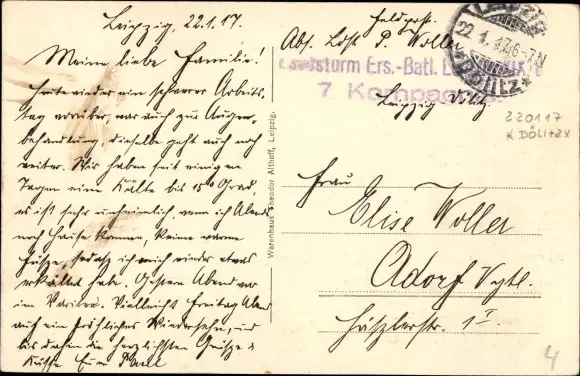 Leipzig, 22.1.17.
Meine liebe Familie!
Heute wieder ein schwerer Arbeits-
tag vorüber, war auch zur Augen-
behandlung, dieselbe geht auch noch
weiter. Wir haben seit einigen
Tagen eine Kälte bis 15° Grad,
es ist sehr unheimlich, wenn ich Abend
nach Hause komme, keine warme
Füsse, sodass ich mich wieder etwas
erkältet habe. Gestern Abend war
im Varieté. Vielleicht Freitag Abend
auf ein fröhliches Wiedersehen, und
bis dahin die herzlichsten Grüsse &
Küsse Euer Paul
Warenhaus Theodor Althoff, Leipzig.
Feldpost.
Abs. Ldst. P. Woller
Landsturm Ers.-Batl. Leipzig
7. Kompagnie
Leipzig Dölitz
LEIPZIG
22.1.17. 6-7N
*DÖLITZ*
220117
* DÖLITZ *
Frau
Elise Woller
Adorf Vgtl.
1 I.
4